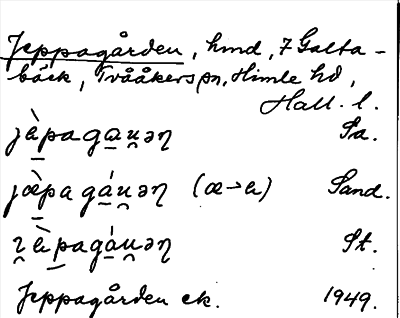 Jeppagården, hmd, 7 Galta-
bäck, Tvååkers sn, Himle hd,
Hall. l.
jæ̀pagau̯əη Sa.
jæ̀pagáu̯əη (æ→a) Sand.
ɀæ̀pagáu̯əη St.
Jeppagården ek. 1949.